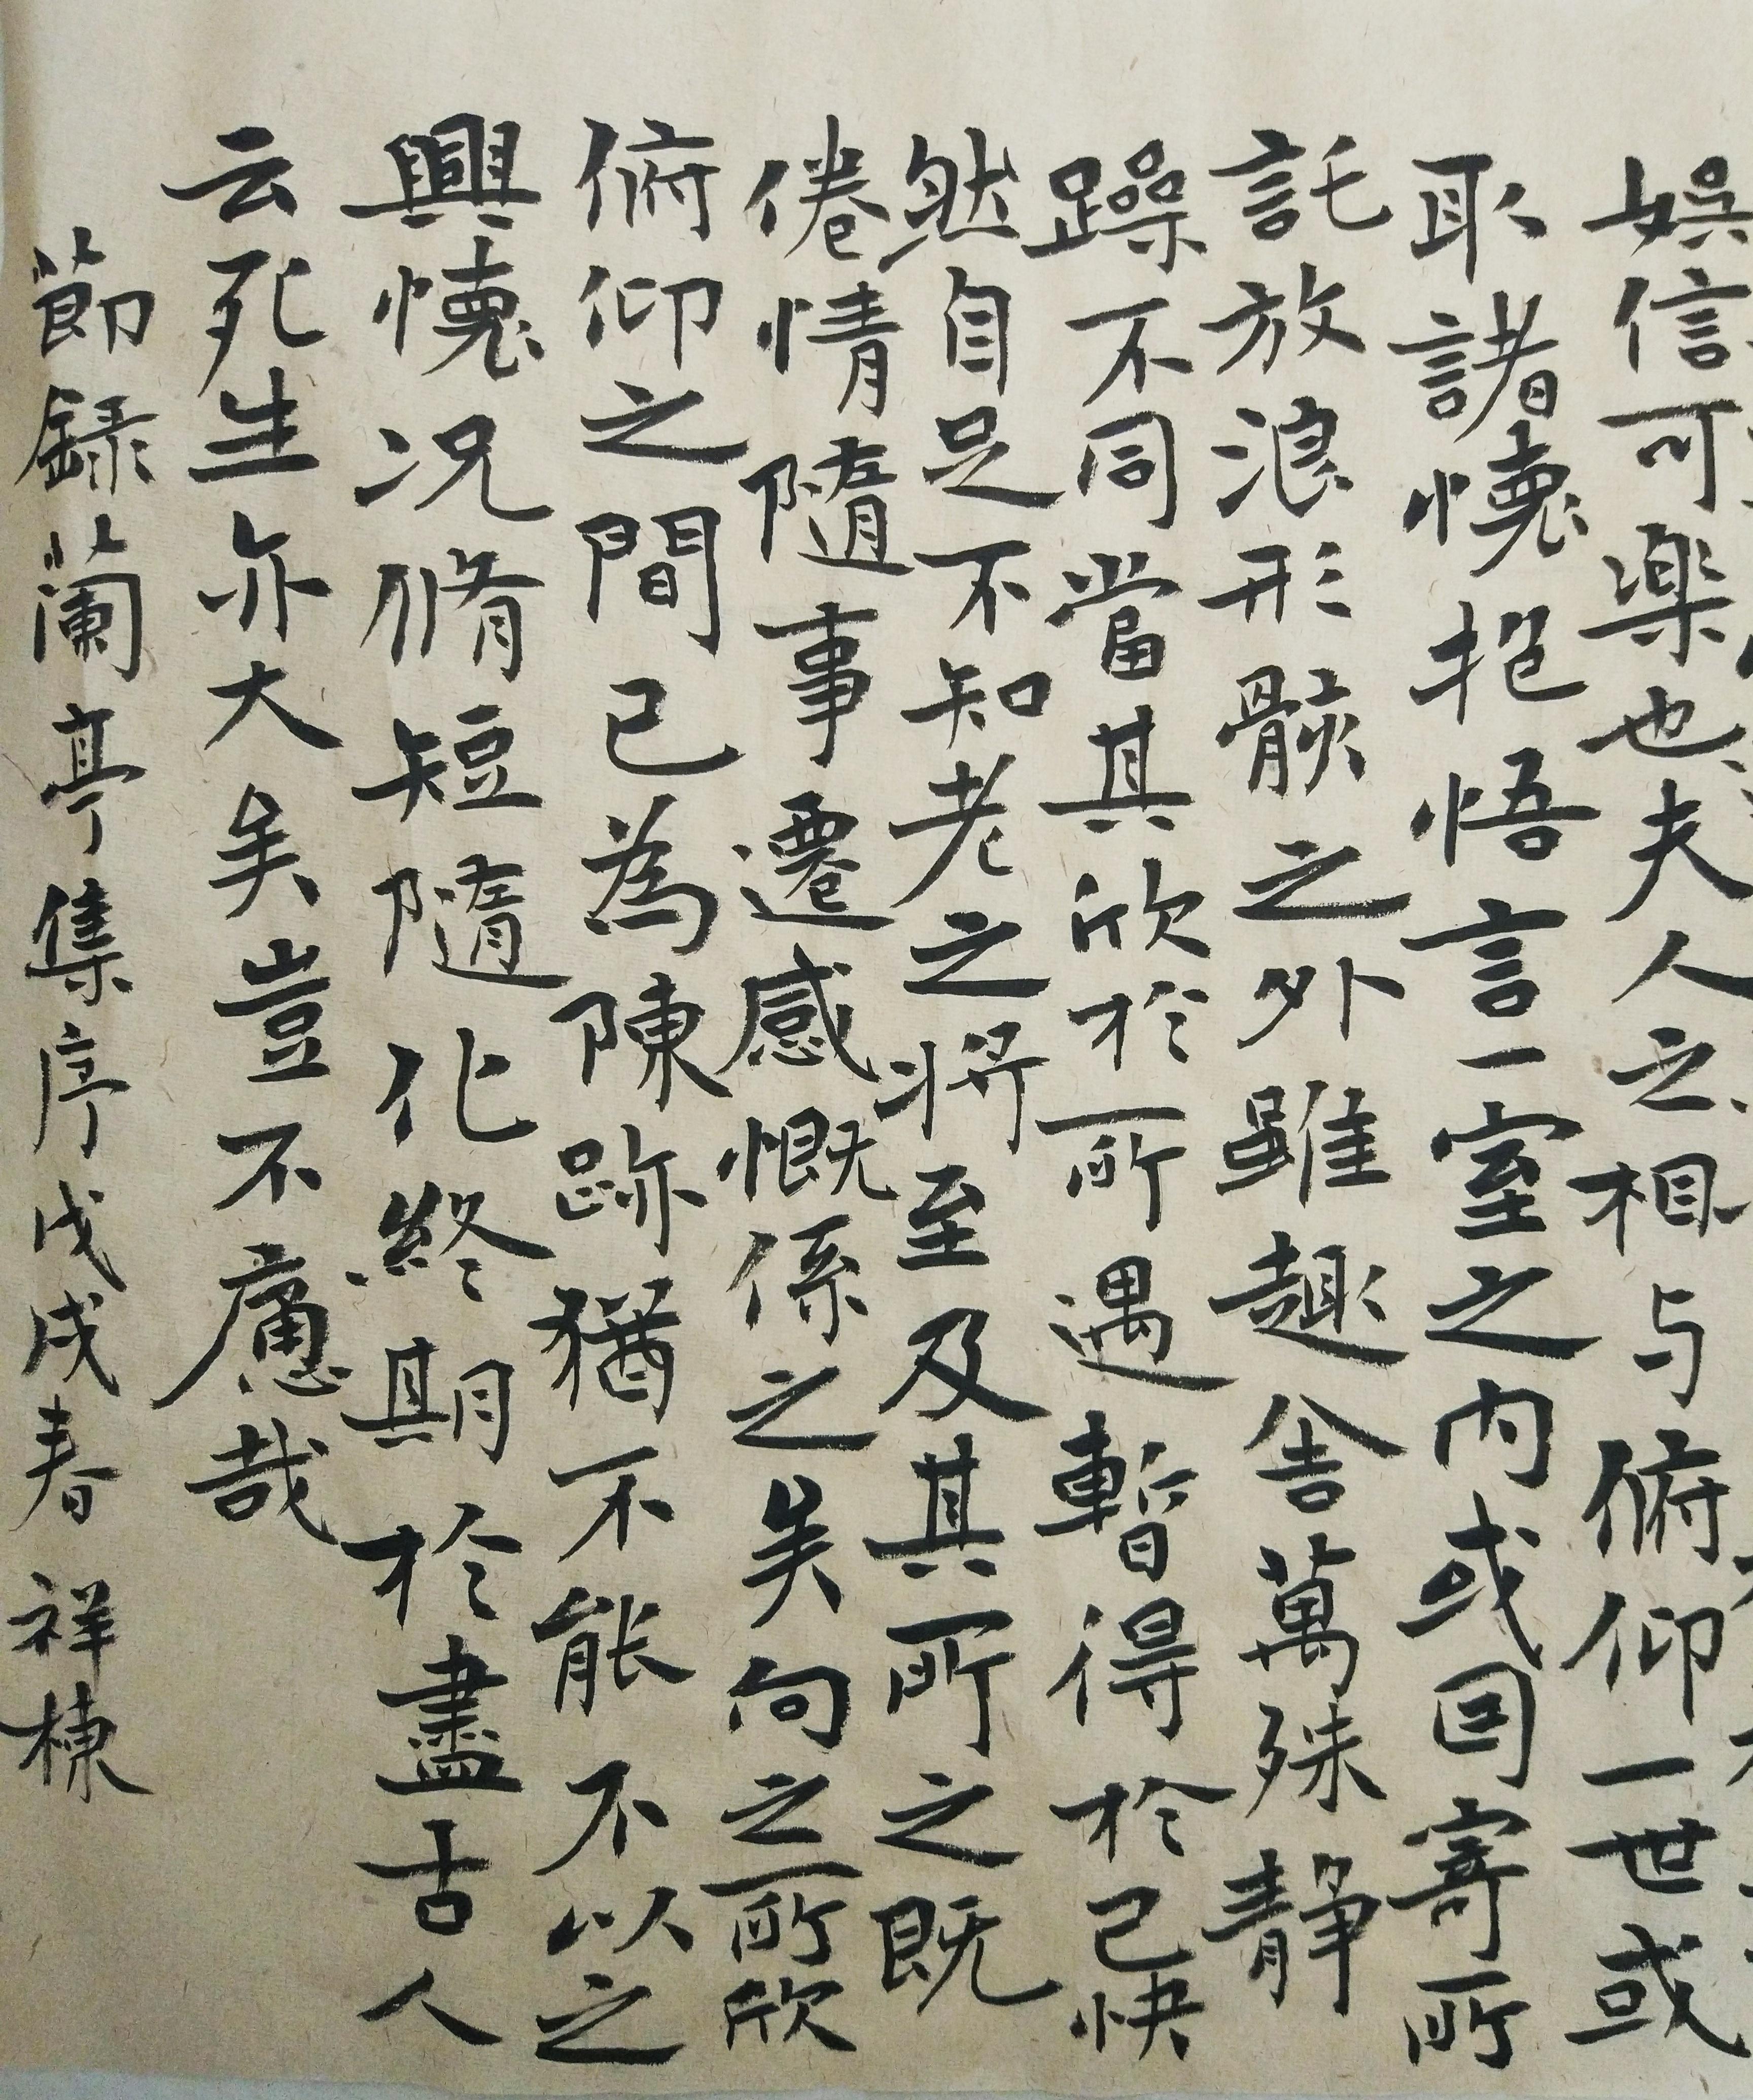 娛信可楽也夫人之相与俯仰一世或
取諸懷抱悟言一室之内或因寄所
託放浪形骸之外雖趣舎萬殊静
躁不同當其欣於所遇暫得於己快
然自足不知老之将至及其所之既
倦情隨事遷感慨係之矣向之所欣
俯仰之間已為陳跡猶不能不以之
興懷况脩短隨化終期於盡古人
云死生亦大矣豈不痛哉
節録蘭亭集序戊戌春祥棟